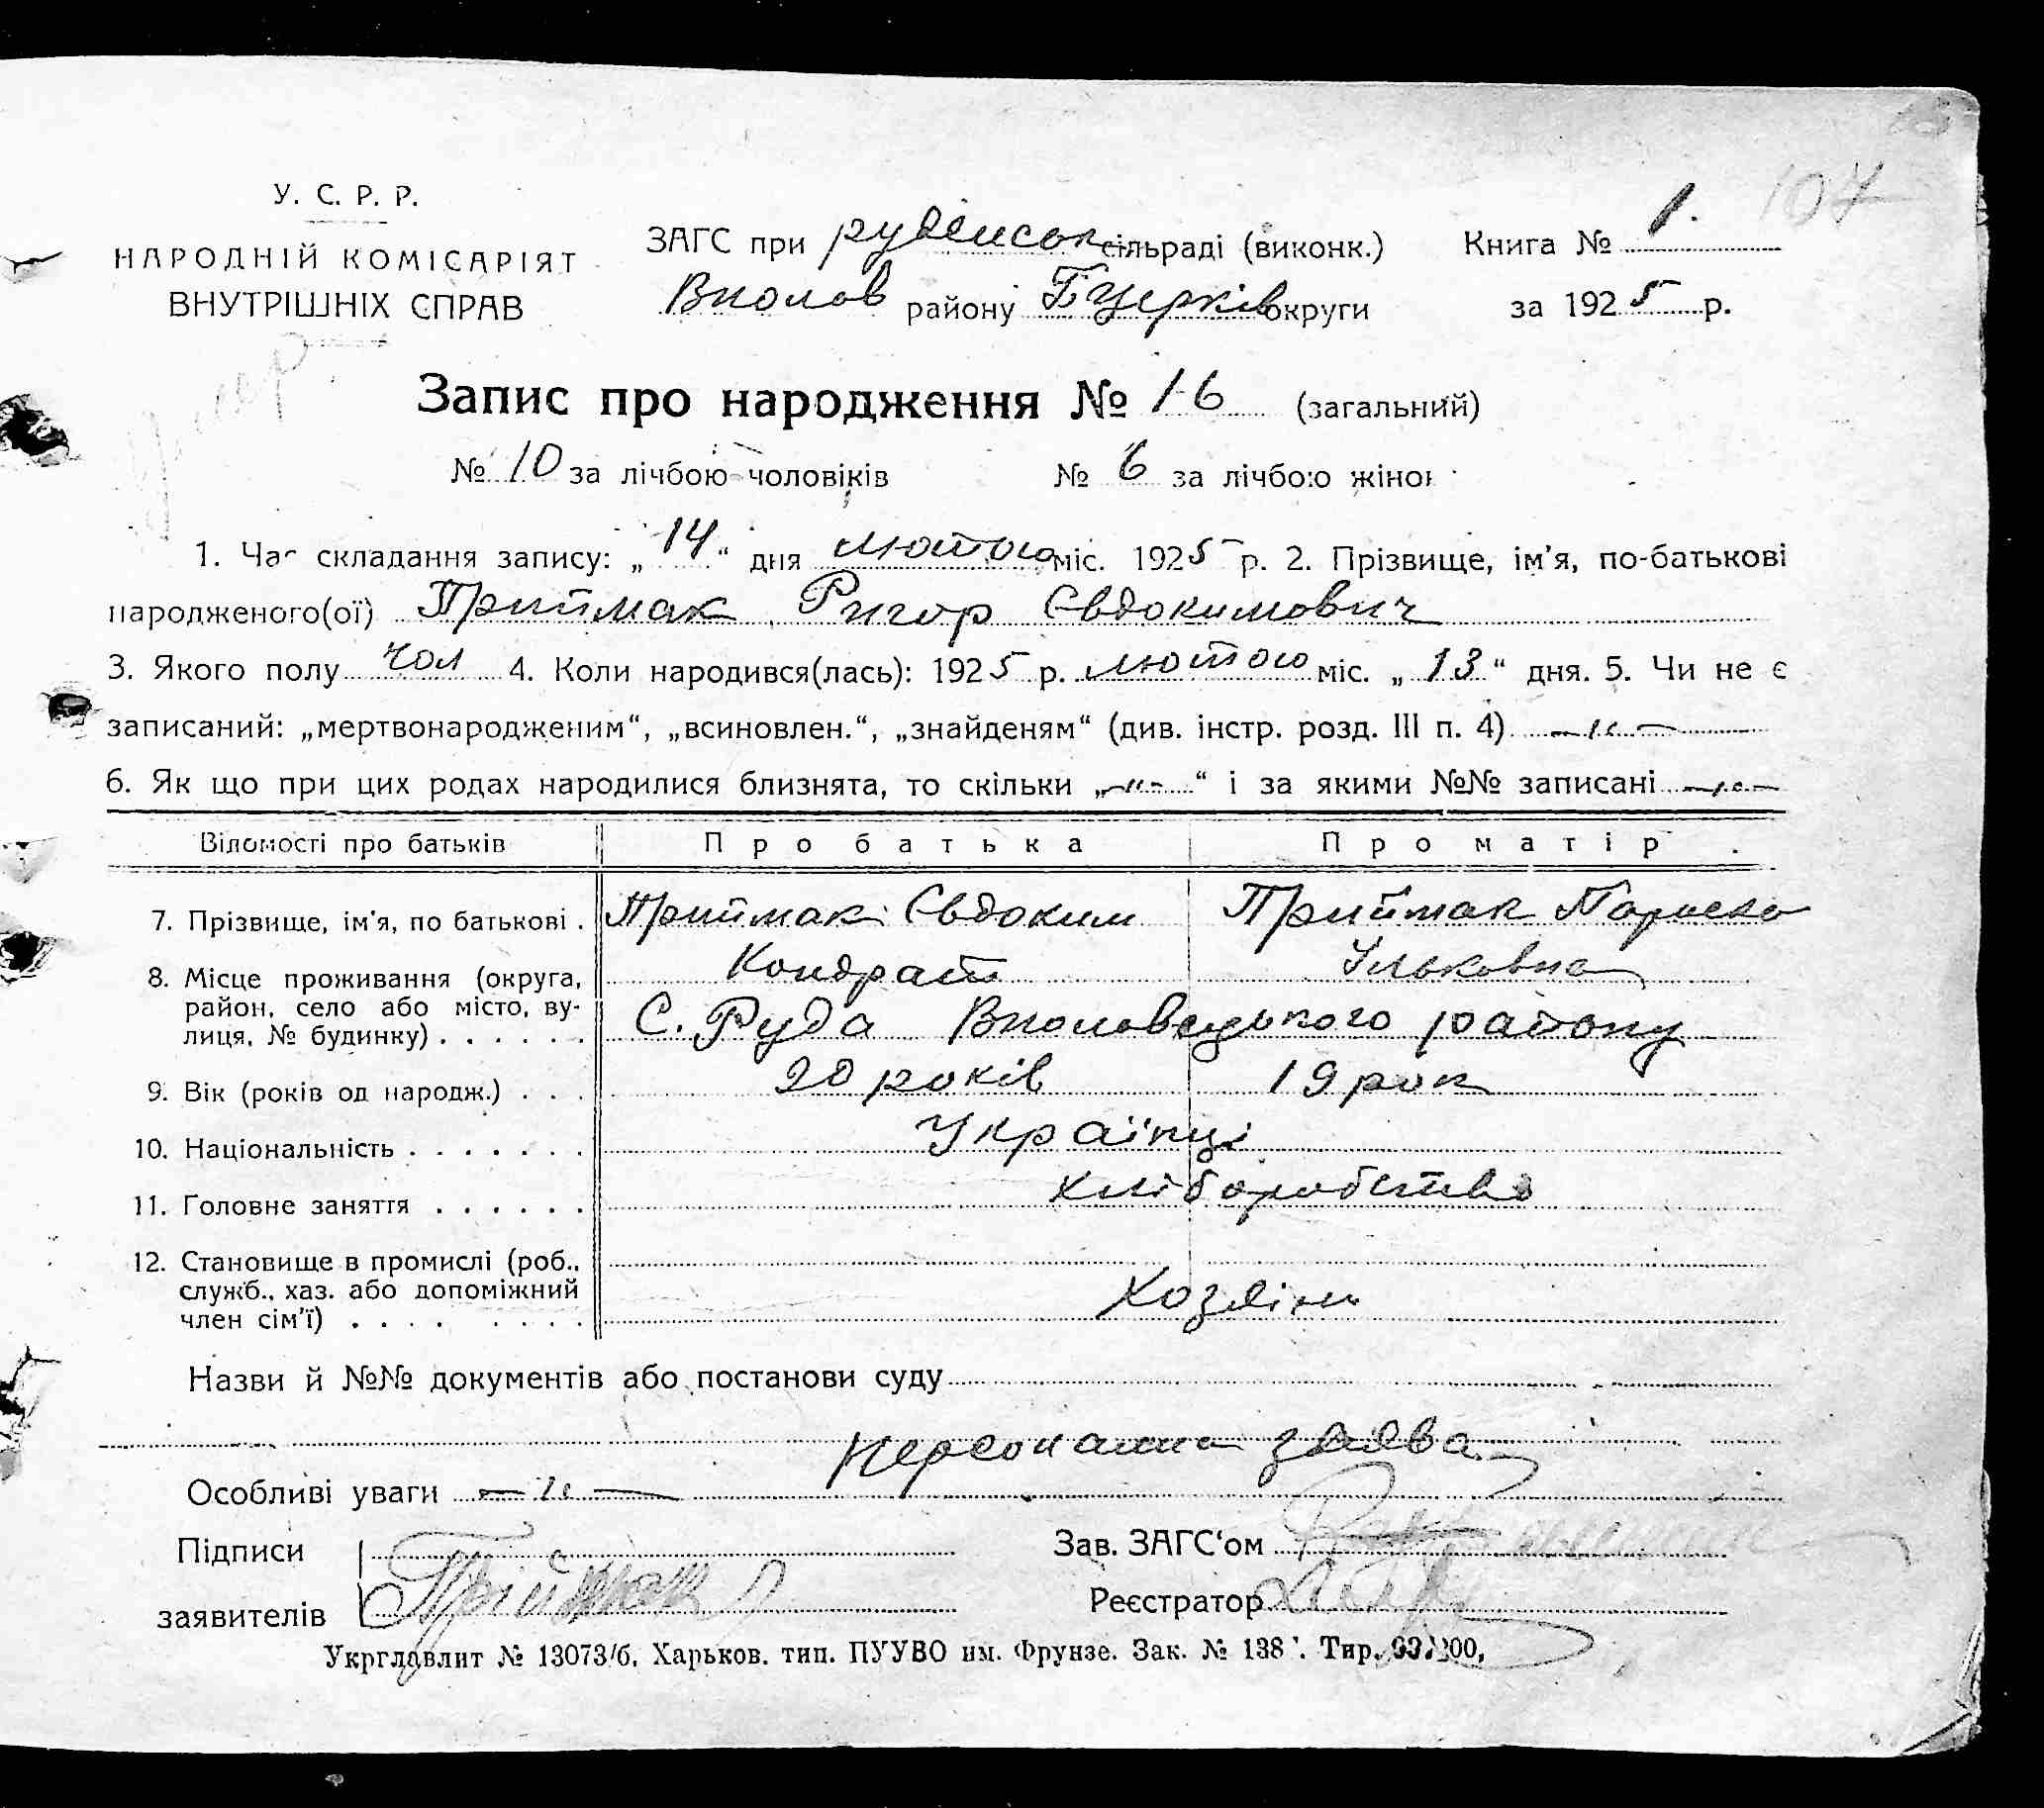 107
У. С. Р. Р.
НАРОДНІЙ КОМІСАРІЯТ
ВНУТРІШНІХ СПРАВ
ЗАГС при руденськ сільраді (виконк.) Книга № 1.
Вполов району Бцерків округи за 1925 р.
умер
Запис про народження № 16 (загальний)
№ 10 за лічбою чоловіків № 6 за лічбою жінок
1. Час складання запису: „14“ дня лютого міс. 1925 р. 2. Прізвище, ім'я, по-батькові
народженого(ої) Приймак Ригор Євдокимович
3. Якого полу чол 4. Коли народився(лась): 1925 р. лютого міс. „13“ дня. 5. Чи не є
записаний: „мертвонародженим“, „всиновлен.“, „знайденям“ (див. інстр. розд. III п. 4) —„—
6. Як що при цих родах народилися близнята, то скільки „—„—“ і за якими №№ записані —„—
Відомості про батьків Про батька Про матір
7. Прізвище, ім'я, по батькові . Приймак Євдоким Приймак Параска
Кондрат Ільковна
8. Місце проживання (округа,
район, село або місто, ву-
лиця, № будинку) . . . . . . С. Руда Вполовецького району
9. Вік (років од народж.) . . . 20 років 19 рок
10. Національність . . . . . . . Українці
11. Головне заняття . . . . . . хліборобство
12. Становище в промислі (роб.,
служб., хаз. або допоміжний
член сім'ї) . . . . . . . . Хозяїни
Назви й №№ документів або постанови суду
персональна заява
Особливі уваги —„—
Підписи Зав. ЗАГС‘ом
заявителів Приймак Реєстратор
Укрглавлит № 13073/б. Харьков. тип. ПУУВО им. Фрунзе. Зак. № 138 Тир.